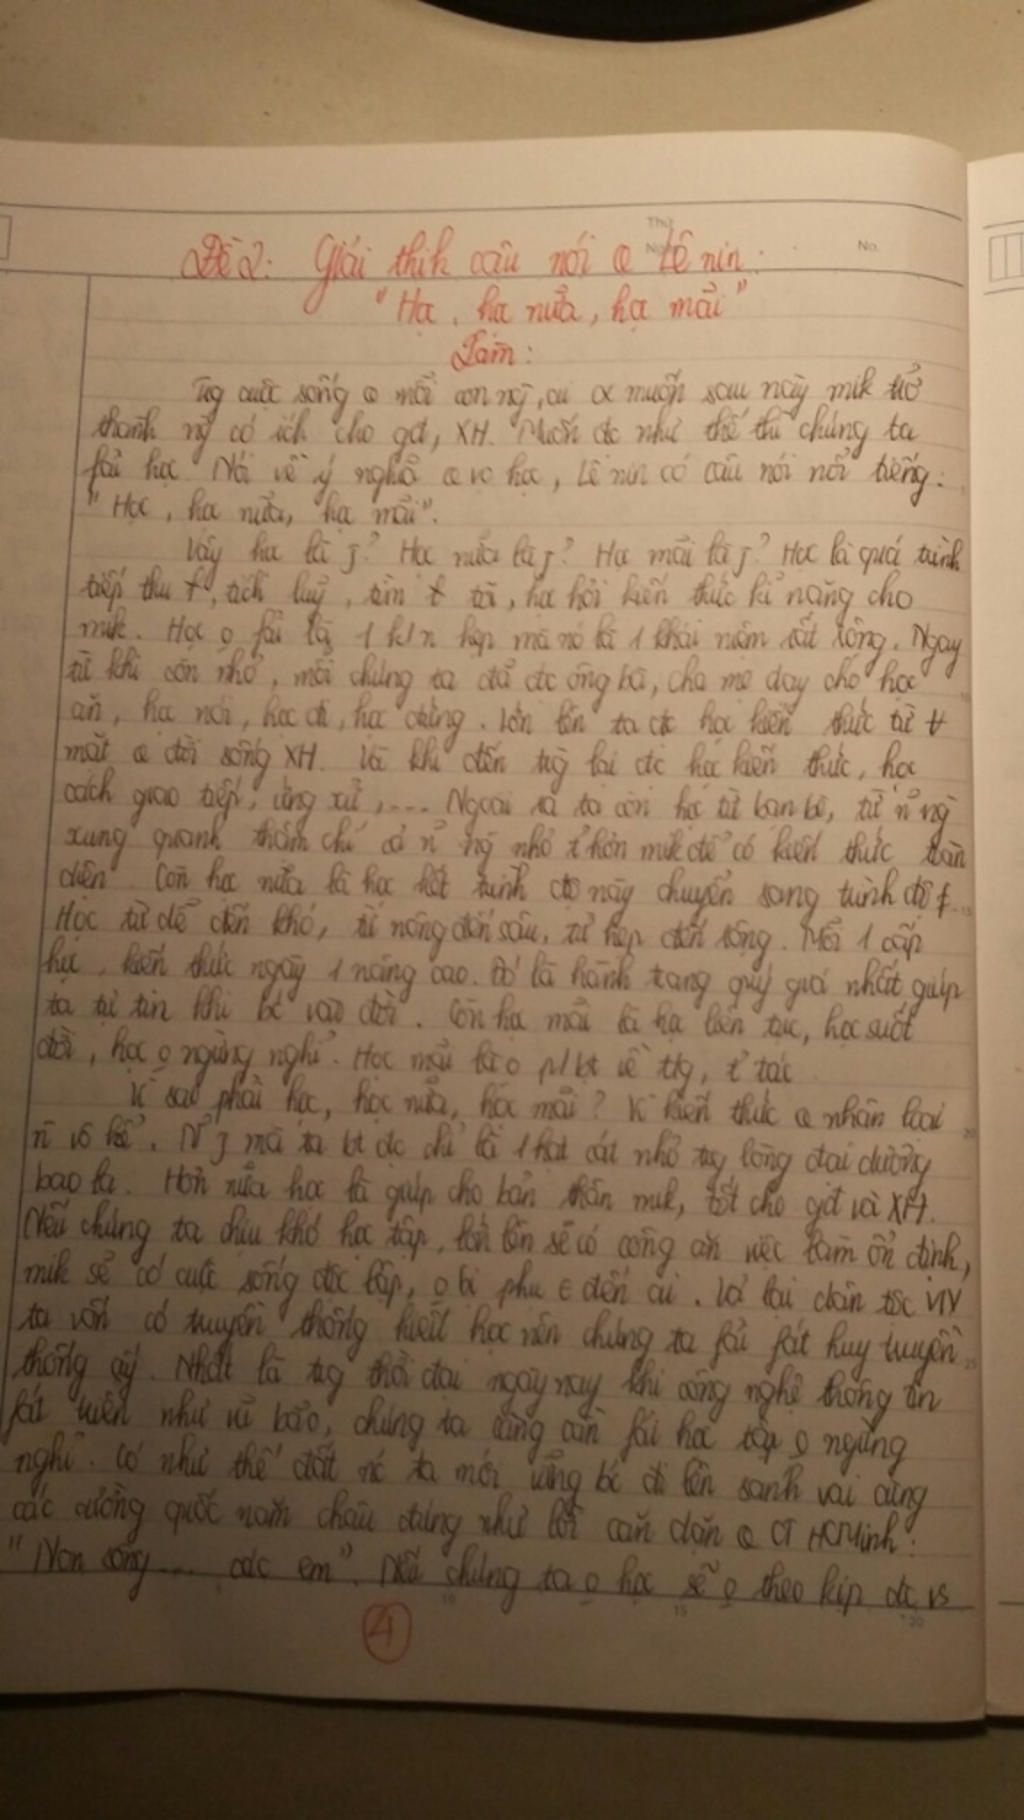 Thứ
No.
Đề 2: Giải thik câu nói Lê nin:
"Học, học nữa, học mãi"
Làm:
Tng cuộc sống mỗi con ng, ai muốn sau này mik trở
thành ng có ích cho gđ, XH. Muốn đc như thế thì chúng ta
fải học. Nói về ý nghĩa vc học, Lê nin có câu nói nổi tiếng:
"Học, học nữa, học mãi".
Vậy học là j? Học nữa là j? Học mãi là j? Học là quá trình
tiếp thu, tích luỹ, tìm tòi, học hỏi kiến thức kĩ năng cho
mik. Học o fải là 1 k/n hẹp mà nó là 1 khái niệm rất rộng. Ngay
từ khi còn nhỏ, mỗi chúng ta đã đc ông bà, cha mẹ dạy cho học
ăn, học nói, học đi, học đứng. Lớn lên ta đc học kiến thức từ
mặt đời sống XH. Và khi đến trg lại đc học kiến thức, học
cách giao tiếp, ứng xử,.... Ngoài ra ta còn học từ bạn bè, từ n ng
xung quanh thậm chí cả n ng nhỏ t hơn mik để có kiến thức toàn
diện. Còn học nữa là học hết trình độ này chuyển sang trình độ
Học từ dễ đến khó, từ nông đến sâu, từ hẹp đến rộng. Mỗi 1 cấp
học, kiến thức ngày 1 nâng cao. Đó là hành trang quý giá nhất giúp
ta tự tin khi bc vào đời. Còn học mãi là học liên tục, học suốt
đời, học o ngừng nghỉ. Học mãi là o p/bt về
Vì sao phải học, học nữa, học mãi? Vì kiến thức nhân loại
vô kể. N j mà ta bt đc chỉ là 1 hạt cát nhỏ tng lòng đại dương
bao la. Hơn nữa học là giúp cho bản thân mik, tốt cho gđ và XH.
Nếu chúng ta chịu khó học tập, lớn lên sẽ có công ăn việc làm ổn định,
mik sẽ có cuộc sống độc lập, o bị phụ đến ai. Vả lại dân tộc VN
ta vốn có truyền thống hiếu học nên chúng ta fải fát huy truyền
thống ấy. Nhất là tng thời đại ngày nay khi công nghệ thông tin
fát triển như vũ bão, chúng ta càng cần fải học tập o ngừng
nghỉ. Có như thế đất nc ta mới vững bc đi lên sánh vai cùng
các cường quốc năm châu đúng như lời căn dặn CT HCMinh:
"Non sông ... các em". Nếu chúng ta o học sẽ o theo kịp đc vs
4
No.